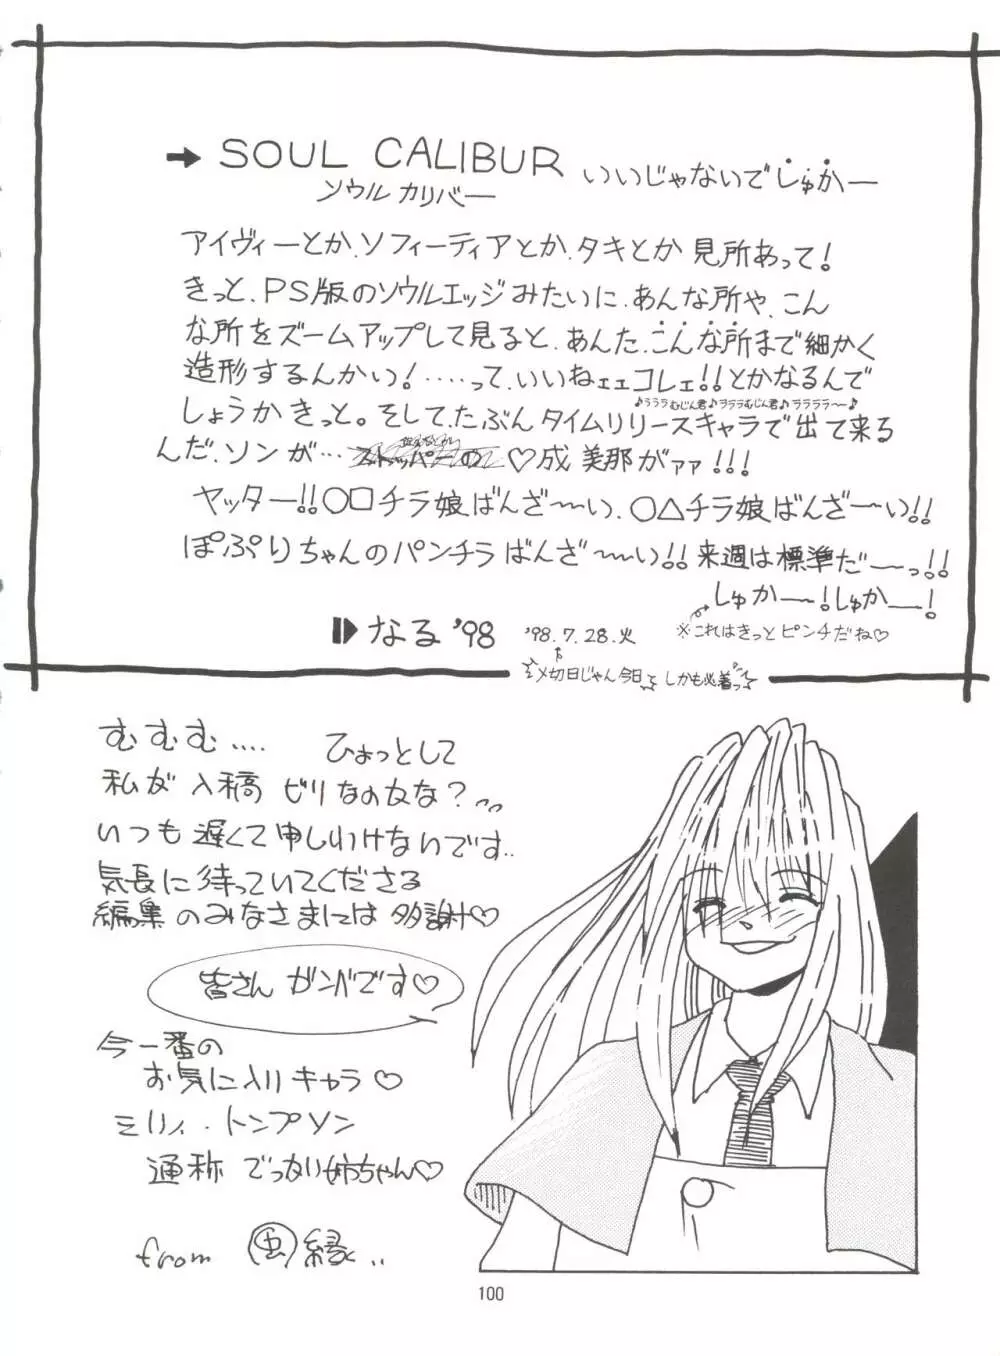 ➡ SOUL CALIBUR いいじゃないでしゅかー
ソウル カリバー
アイヴィーとか、ソフィーティアとか、タキとか見所あって!
きっと、PS版のソウルエッジみたいに、あんな所や、こん
な所をズームアップして見ると、あんた、こんな所まで細かく
造形するんかい!‥‥って、いいねェェコレェ!!とかなるんで
♪ラララむじん君♪ラララむじん君♪ララララ〜♪
しょうかきっと。そして、たぶんタイムリリースキャラで出て来る
んだ、ソンが…
♡成美那がァァ!!!
ヤッター!!○□チラ娘ばんざ〜い、○△チラ娘ばんざ〜い!!
ぽぷりちゃんのパンチラばんざ〜い!!来週は標準だーっ!!
しゅかー!しゅかー!
※これはきっとピンチだね♡
なる '98
'98.7.28.火
〆切日じゃん今日 しかも必着っ
むむむ.... ひょっとして
私が入稿ビリなのかな?
いつも遅くて申しわけないです..
気長に待っていてくださる
編集のみなさまには多謝♡
皆さんガンバです♡
今一番の
お気に入りキャラ♡
ミリィ・トンプソン
通称でっかい姉ちゃん♡
from 虫縁..
100